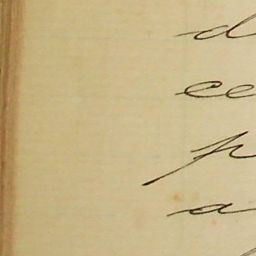 d
ce
p
a